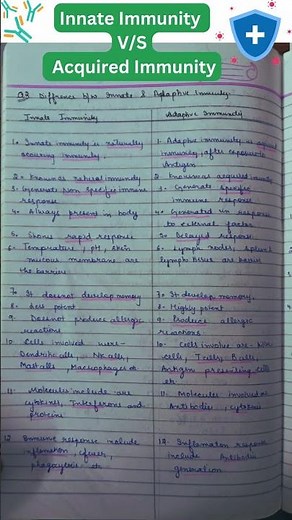 Innate Immunity
V/S
Acquired Immunity
Q2 Diffrence b/w Innate & Adaptive Immunity.
Innate Immunity
1. Innate immunity is naturally
occuring immunity.
2. Known as natural immunity
3. Generate non specific immune
response
4. Always present in body
5. Shows rapid response
6. Temperature, pH, skin
mucous membrane are
the barrier
7. It doesnot develop memory
8. Less potent
9. Doesnot produce allergic
reactions
10. Cells involved were-
Dendritic cells, NK cells,
Mast cells, Macrophages etc
11. Molecules include are
cytokins, Interferons and
proteins
12. Immune response include
inflamation, fever,
phagocytosis etc
Adaptive Immunity
1. Adaptive immunity is
immunity, after exposure to
Antigen
2. Known as acquired immunity
3. Generate specific
immune response
4. Generated in response
to external factor
5. Delayed response
6. Lymph nodes, spleen
lymph tissue are barrier
7. It develop memory.
8. Highly potent
9. Produce allergic
reactions
10. Cells involve are-
cells, T cells, B cells,
Antigen presenting cells
etc
11. Molecules involved are
Antibodies, cytokins
12. Inflamation response
include Antibodies
generation